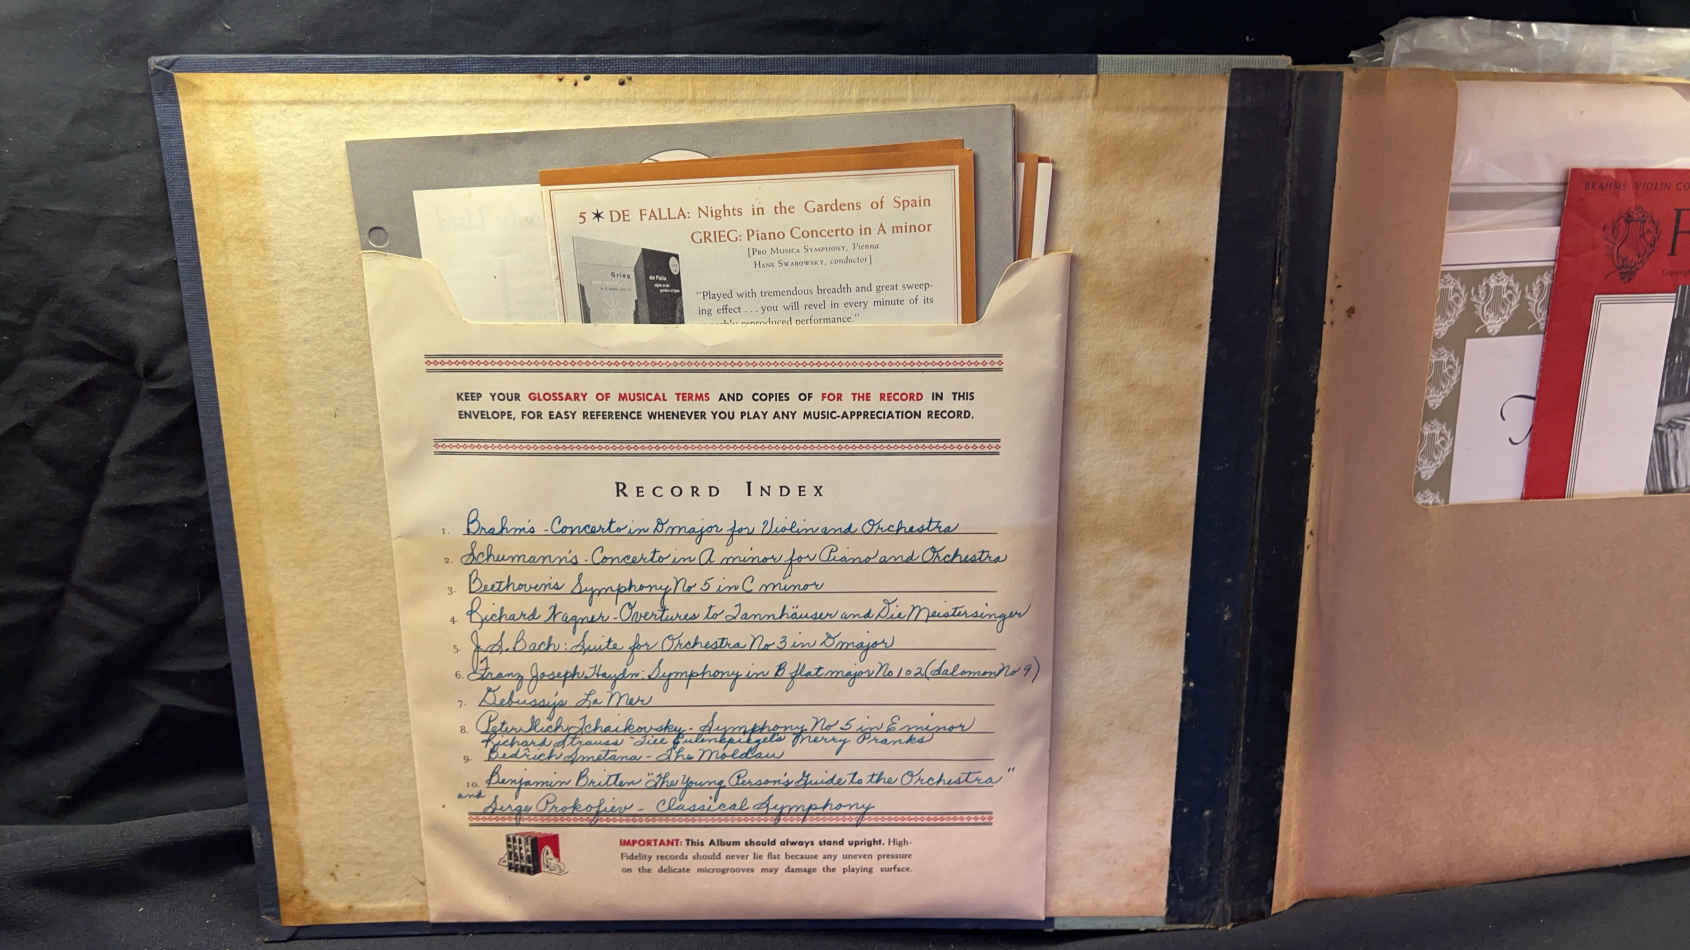 5 ✶ DE FALLA: Nights in the Gardens of Spain
GRIEG: Piano Concerto in A minor
[PRO MUSICA SYMPHONY, Vienna
HANS SWAROWSKY, conductor]
Grieg
de Falla
"Played with tremendous breadth and great sweep-
ing effect . . . you will revel in every minute of its
reproduced performance."
KEEP YOUR GLOSSARY OF MUSICAL TERMS AND COPIES OF FOR THE RECORD IN THIS
ENVELOPE, FOR EASY REFERENCE WHENEVER YOU PLAY ANY MUSIC-APPRECIATION RECORD.
RECORD INDEX
1. Brahm's - Concerto in D major for Violin and Orchestra
2. Schumann's - Concerto in A minor for Piano and Orchestra
3. Beethoven's Symphony No 5 in C minor
4. Richard Wagner - Overtures to Tannhäuser and Die Meistersinger
5. J.S. Bach: Suite for Orchestra No 3 in D major
6. Franz Joseph Haydn: Symphony in B flat major No 102 (Salomon No 9)
7. Debussy's La Mer
8. Peter Ilich Tchaikovsky - Symphony No 5 in E minor
Richard Strauss "Till Eulenspiegel's Merry Pranks
9. Bedrich Smetana - The Moldau
10. Benjamin Britten "The Young Person's Guide to the Orchestra"
and Serge Prokofiev - Classical Symphony
IMPORTANT: This Album should always stand upright. High-
Fidelity records should never lie flat because any uneven pressure
on the delicate microgrooves may damage the playing surface.
BRAHMS VIOLIN CO
F
T